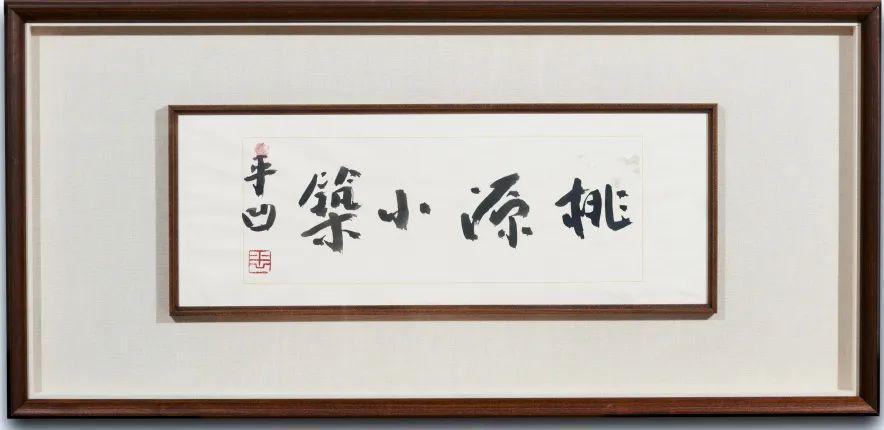 桃源小築
平凹